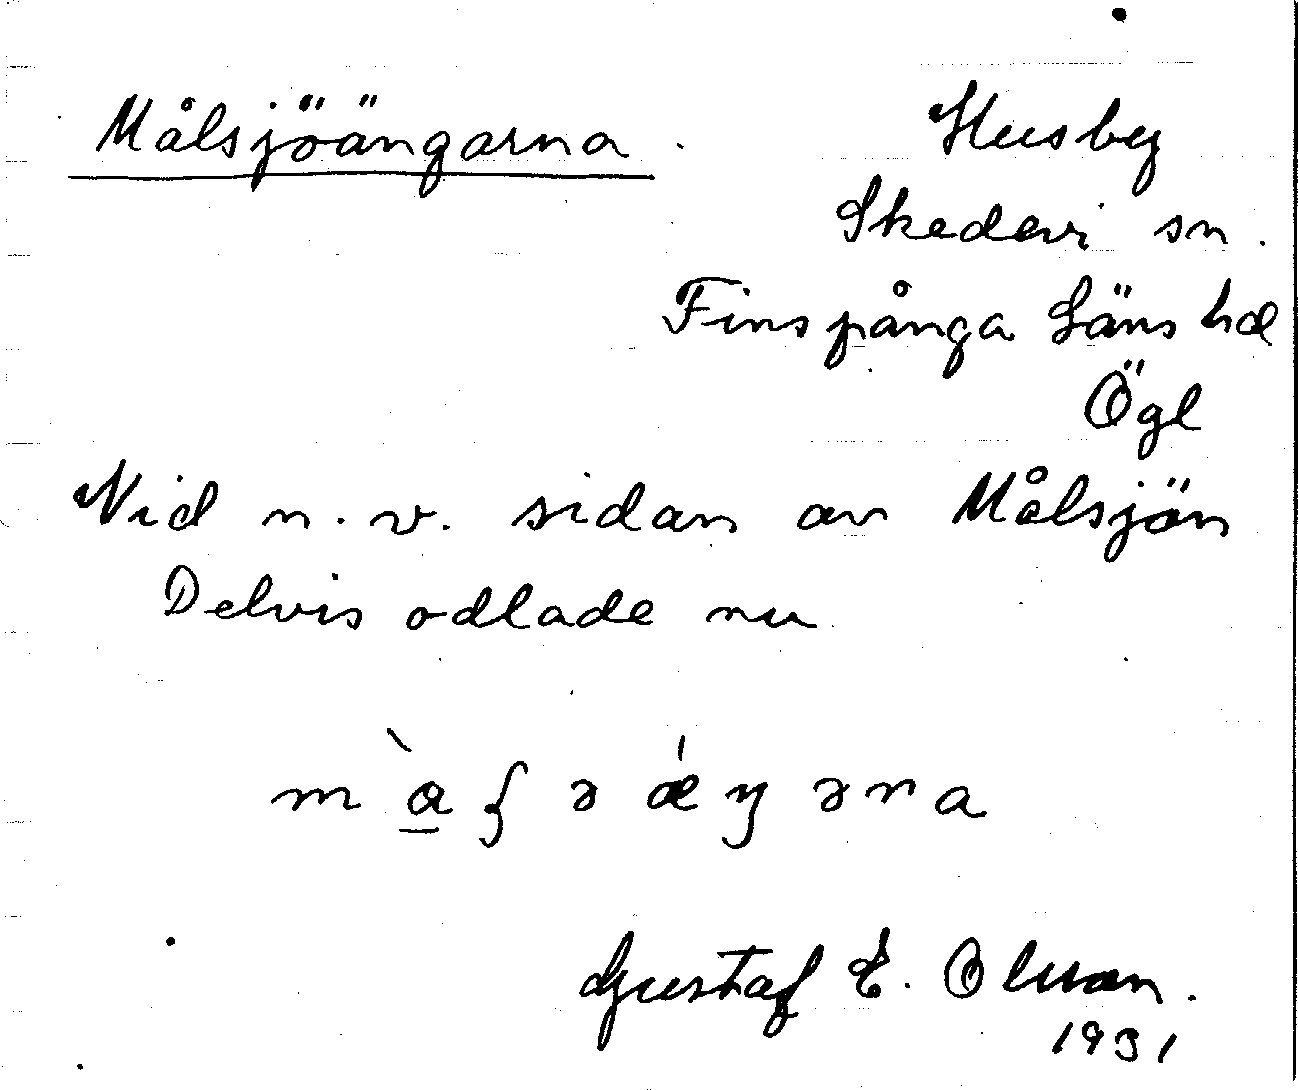 Målsjöängarna.
Husby
Skedevi sn.
Finspånga läns hd
Ögl
Vid n.v. sidan av Målsjön
Delvis odlade nu
Gustaf E. Olsson.
1931